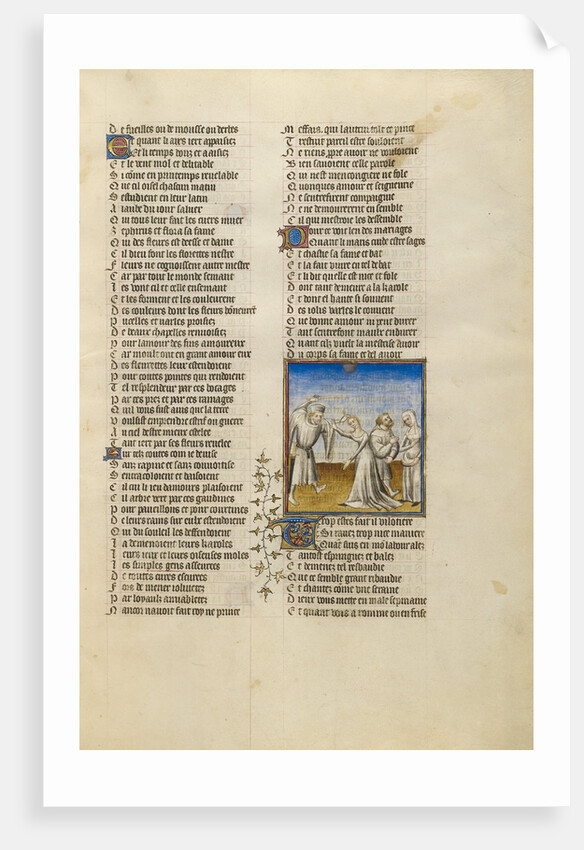 De fueilles ou de mousse ou derbes
Et quant li airs iert apaisiez
Et li temps douz et aaisiez
Et le vent mol et delitable
Si cōme en printemps renelable
Que cil oisel chascun matin
Sestudient en leur latin
A laude du iour saluer
Qui tous leur fait les cuers muer
Zephirus et flora sa fame
Qui des fleurs est deesse et dame
Cil dieu font les florettes nestre
Fleurs ne cognoissent autre mestre
Car par tout le monde semant
Les vont il et celle ensemant
Et les forment et les couleurent
Des couleurs dont les fleurs
Pucelles et varles proisiez
De beaux chapelles renvoisiez
Pour lamour des fins amoureux
Car moult ont en grant amour eux
Des fleurettes leur estendoient
Pour coutes pointes qui rendoient
Tel resplendeur par ces bocages
Par ces prez et par ces ramages
Quil vous fust auis que la terre
Vousist emprendre estrif ou guerre
Au ciel destre mieux estelee
Tant iert par ses fleurs reuelee
Sur telz coutes com ie deuise
Sanz rapine et sanz couuoitise
Sentracoloient et baisoient
Cil cui li ieu damours plaisoient
Cil arbre vert par ces gaudines
Pour paueillons et pour courtines
De leurs rains sur eulx estendoient
Qui du souleil les deffendoient
La demenoient leurs karoles
Leurs ieux et leurs oiseuses moles
Les simples gens asseurees
De toutes cures escurees
Fors de mener ioliuetez
Par loyaulx amiabletez
Nancor nauoit fait roy ne prince
Meffais qui lautrui tolt et pince
Trestuit pareil estre souloient
Ne riens ppre auoir ne vouloient
Bien sauoient celle parole
Qui nest mencongiere ne fole
Quonques amour et seigneurie
Ne sentrefirent compaignie
Ne ne demourerent ensemble
Cil qui mestroie les dessemble
Pour ce voit len des mariages
Quant li maris cuide estre sages
Et chastie sa fame et bat
Et la fait viure en tel debat
Et li dit quelle est nice et fole
Dont tant demeure a la karole
Et dont el hante si souuent
Des iolis varles le conuent
Que bonne amour ni peut durer
Tant sentrefont maulx endurer
Quant cilz vuelt la mestrise auoir
Du corps sa fame et del auoir
Trop estes fait il vilotiere
Si rauez trop nice maniere
Quāt suis en mō labour alez
Tantost espringuez et balez
Et demenez tel resbaudie
Que ce semble grant ribaudie
Et chantez cōme vne seraine
Dieux vous mette en male sepmaine
Et quant vois a romme ou en frise